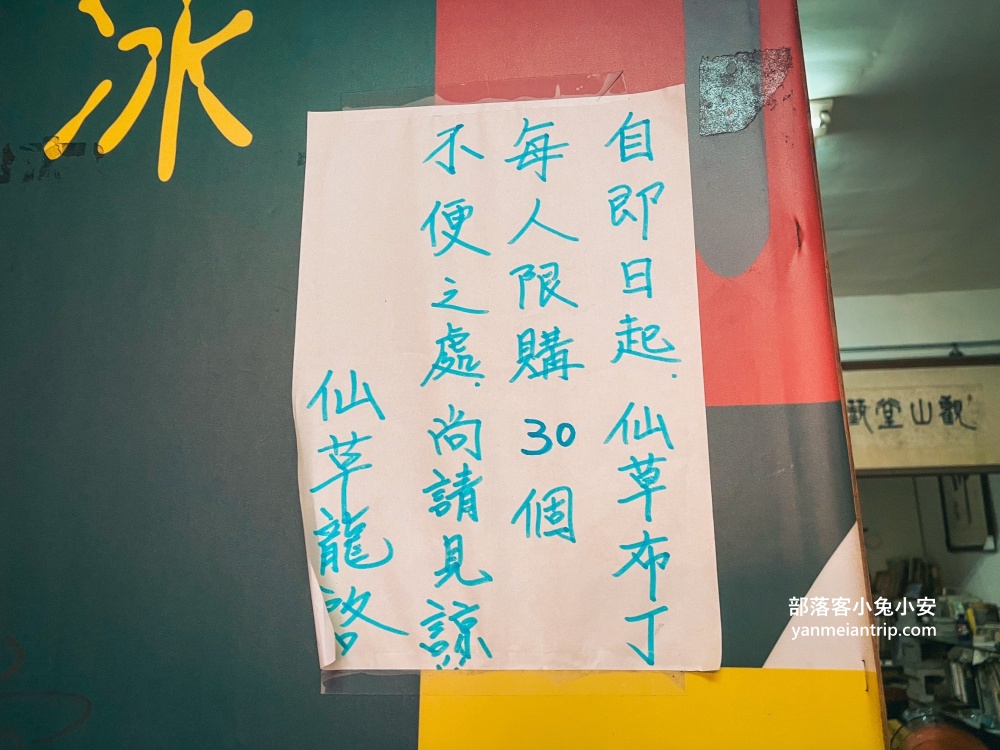 冰
自即日起.仙草布丁
每人限購30個
不便之處.尚請見諒
仙草龍啓
觀山堂藝
部落客小兔小安
yanmeiantrip.com